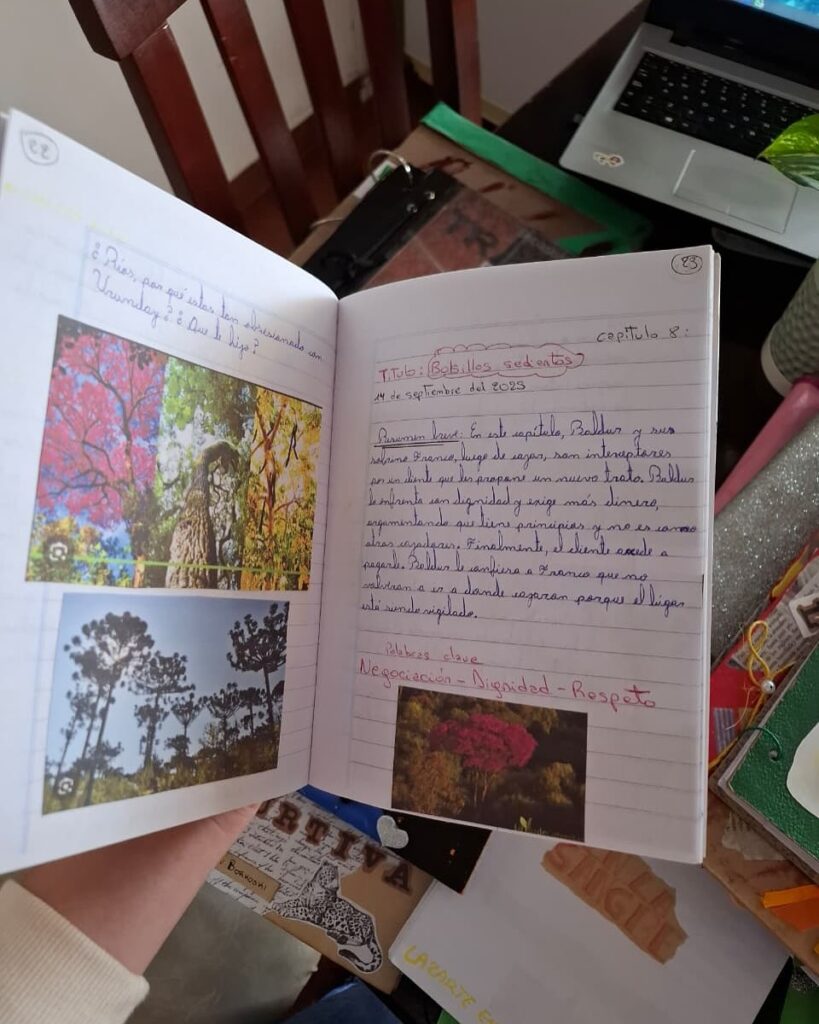 22
¿Ríos, por qué estas tan obsesionado con
Urunday? ¿Que te hizo?
23
capitulo 8:
Titulo: Bolsillos sedientos
14 de septiembre del 2025
Resumen breve: En este capitulo, Baldur y su
sobrino Franco, luego de cazar, son interceptores
por un cliente que les propone un nuevo trato. Baldur
lo enfrenta con dignidad y exige más dinero,
argumentando que tiene principios y no es como
otros cazadores. Finalmente, el cliente accede a
pagarle. Baldur le confiesa a Franco que no
volveran a ir a donde cazaron porque el lugar
está siendo vigilado.
Palabras clave
Negociación - Dignidad - Respeto
TR
URTIVA
BORKOSKI
SANGRE
LAZARTE